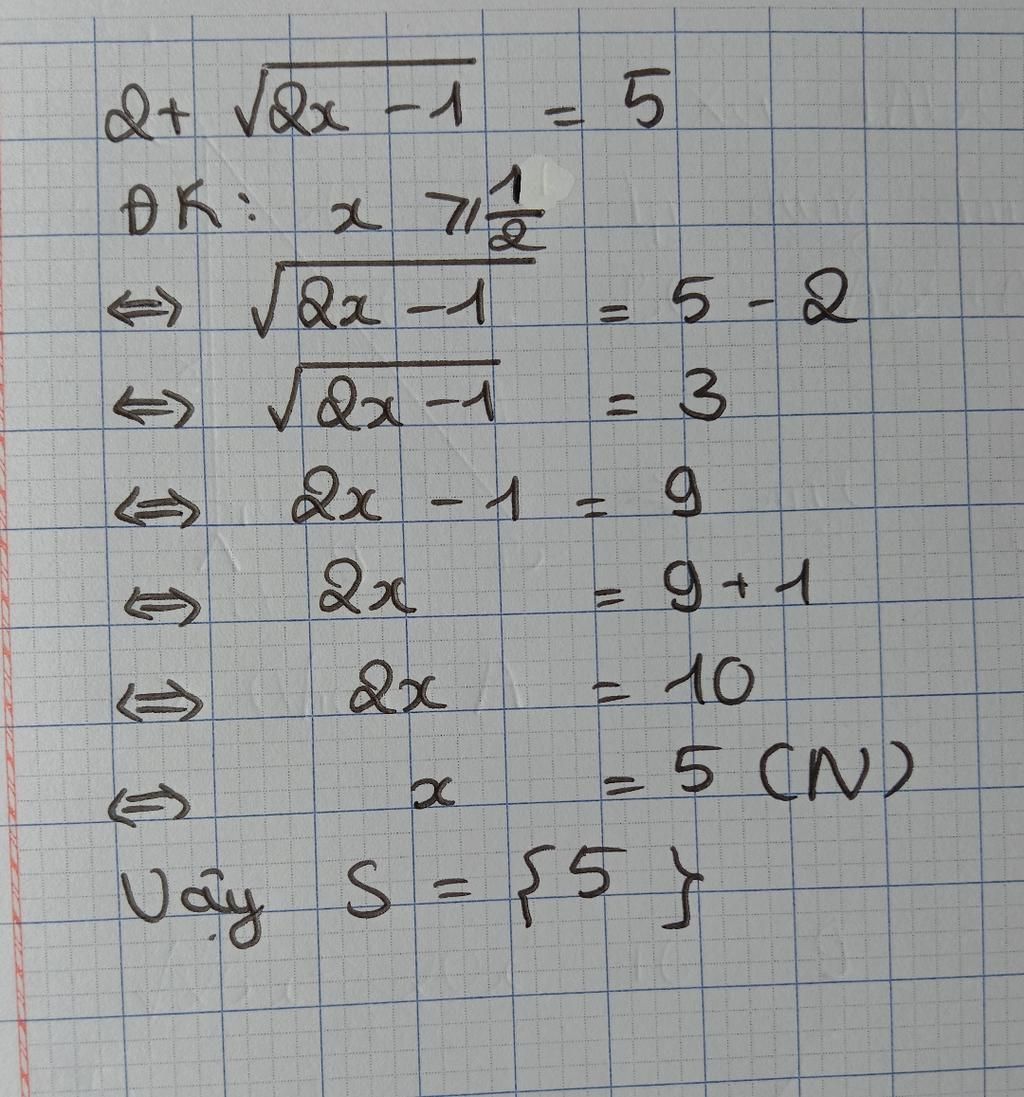 2 + √(2x - 1) = 5
ĐK: x ⩾ 1/2
⇔ √(2x - 1) = 5 - 2
⇔ √(2x - 1) = 3
⇔ 2x - 1 = 9
⇔ 2x = 9 + 1
⇔ 2x = 10
⇔ x = 5 (N)
Vậy S = {5}